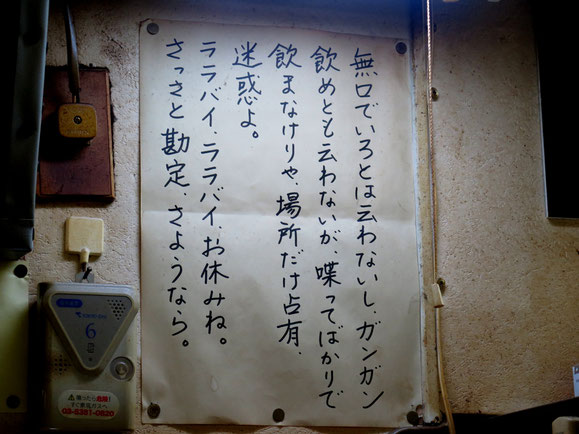 無口でいろとは云わないし、ガンガン
飲めとも云わないが、喋ってばかりで
飲まなけりゃ、場所だけ占有、
迷惑よ。
ララバイ、ララバイ、お休みね。
さっさと勘定、さようなら。
6
鳴ったら危険!
すぐ東京ガスへ